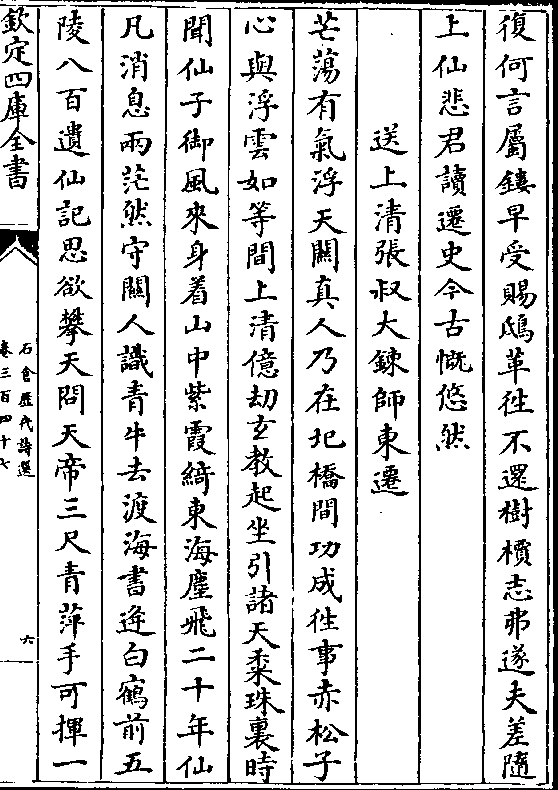 復何言屬鏤早受賜鴟革徃不還樹檟志弗遂夫差隨
上仙悲君讀遷史今古慨悠然
送上清張叔大鍊師東遷
芒蕩有氣浮天闕真人乃在圯橋間功成徃事赤松子
心與浮雲如等間上清億劫玄教起坐引諸天黍珠裏時
聞仙子御風來身着山中紫霞綺東海塵飛二十年仙
凡消息兩茫然守關人識青牛去渡海書迎白鶴前五
陵八百遺仙記思欲攀天問天帝三尺青萍手可揮一
欽定四庫全書
石倉歷代詩選
卷三百四十七
六